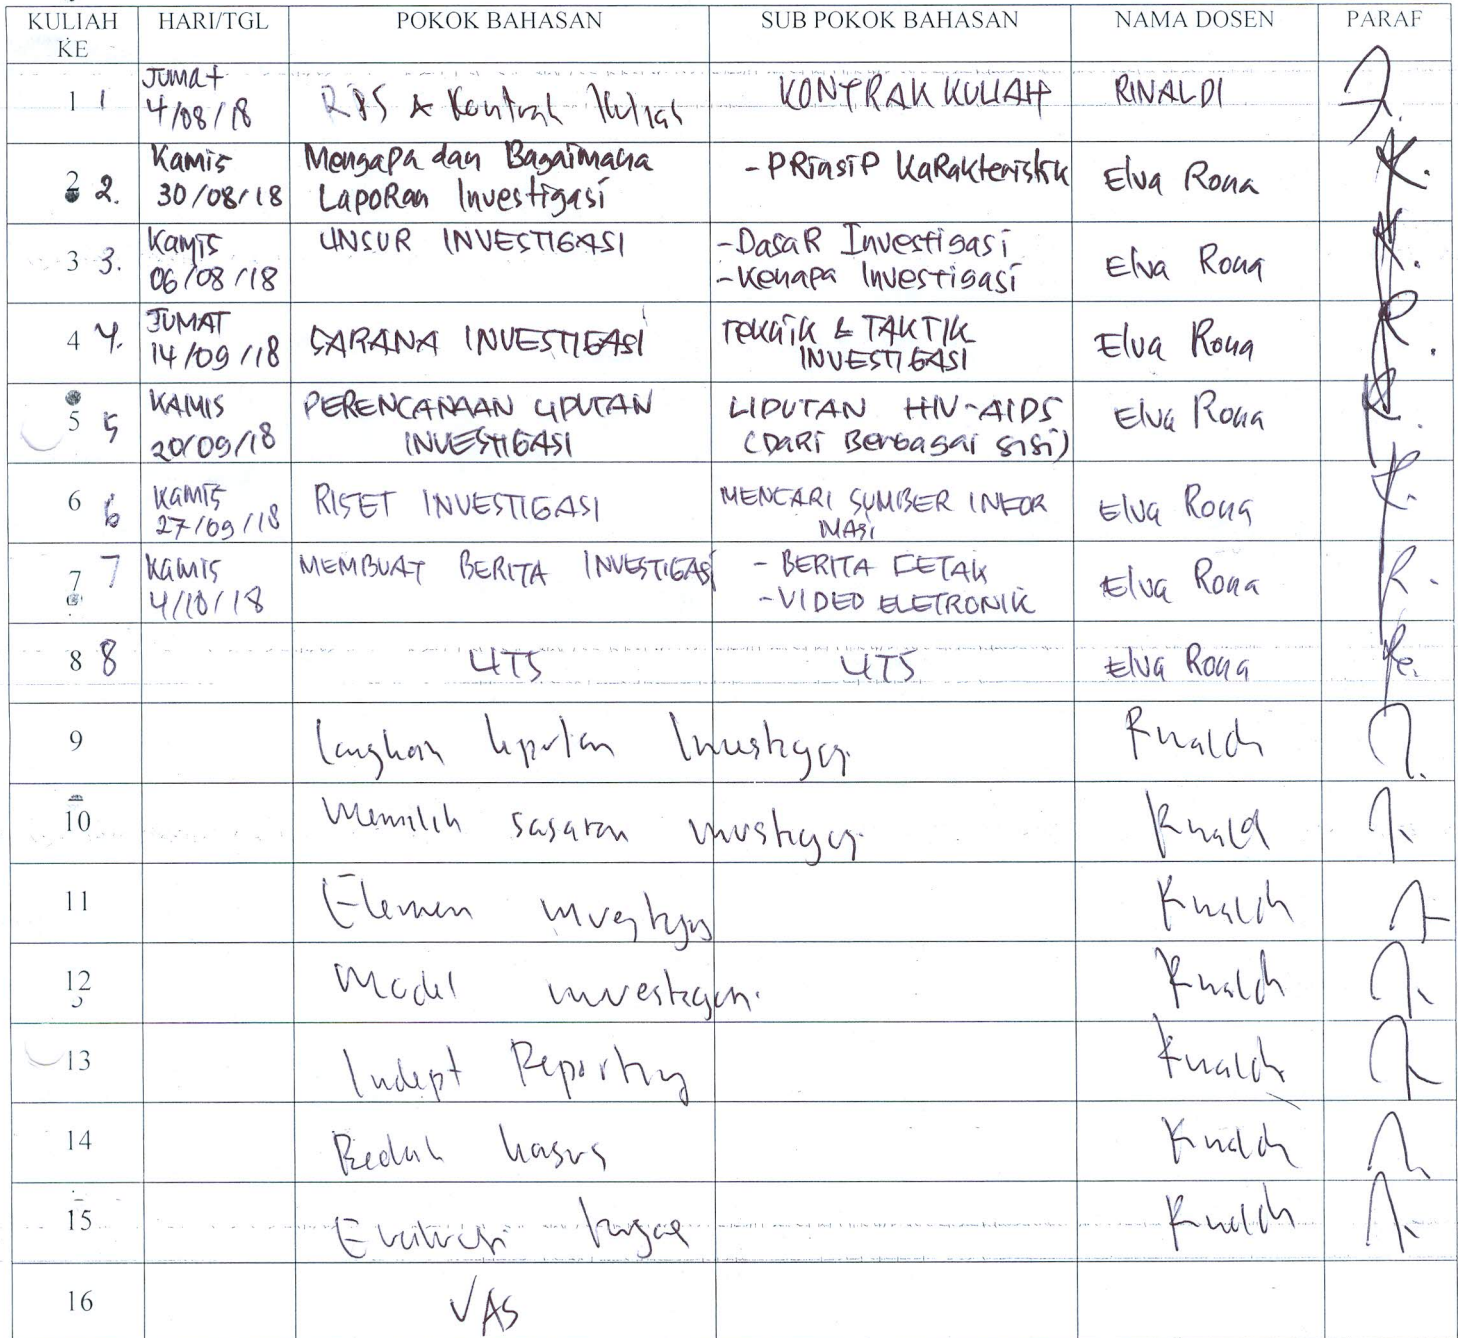 KULIAH KE HARI/TGL POKOK BAHASAN SUB POKOK BAHASAN NAMA DOSEN PARAF
1 1 Jumat 4/08/18 RPS & Kontrak Kuliah KONTRAK KULIAH RINALDI
2 2. Kamis 30/08/18 Mengapa dan Bagaimana Laporan Investigasi - PRinsip Karakteristik Elva Rona
3 3. Kamis 06/08/18 UNSUR INVESTIGASI - Dasar Investigasi - Kenapa Investigasi Elva Rona
4 4. JUMAT 14/09/18 SARANA INVESTIGASI Teknik & TAKTIK INVESTIGASI Elva Rona
5 5 KAMIS 20/09/18 PERENCANAAN LIPUTAN INVESTIGASI LIPUTAN HIV-AIDS (DARi Berbagai sisi) Elva Rona
6 6 Kamis 27/09/18 RISET INVESTIGASI MENCARI SUMBER INFOR MASi Elva Rona
7 7 Kamis 4/10/18 MEMBUAT BERITA INVESTIGASI - BERITA CETAK - VIDEO ELETRONIK Elva Rona
8 8 UTS UTS Elva Rona
9 Langkah liputan Investigasi. Rinaldi
10 Memilih sasaran investigasi. Rinaldi
11 Elemen investigasi Rinaldi
12 Model investigasi. Rinaldi
13 Indept Reporting Rinaldi
14 Bedah kasus Rinaldi
15 Evaluasi tugas Rinaldi
16 UAS